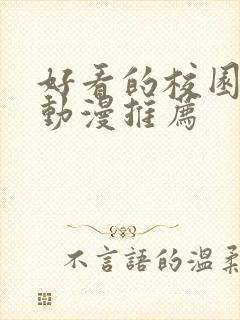 好看的校园
動漫推薦
不言語的温柔